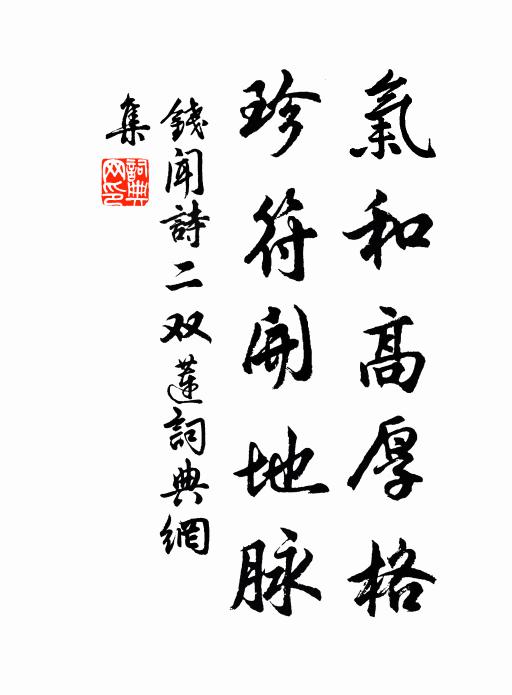 氣和高厚格
珍符開地脉
錢聞詩二双蓮詞典網
集
詞典網印